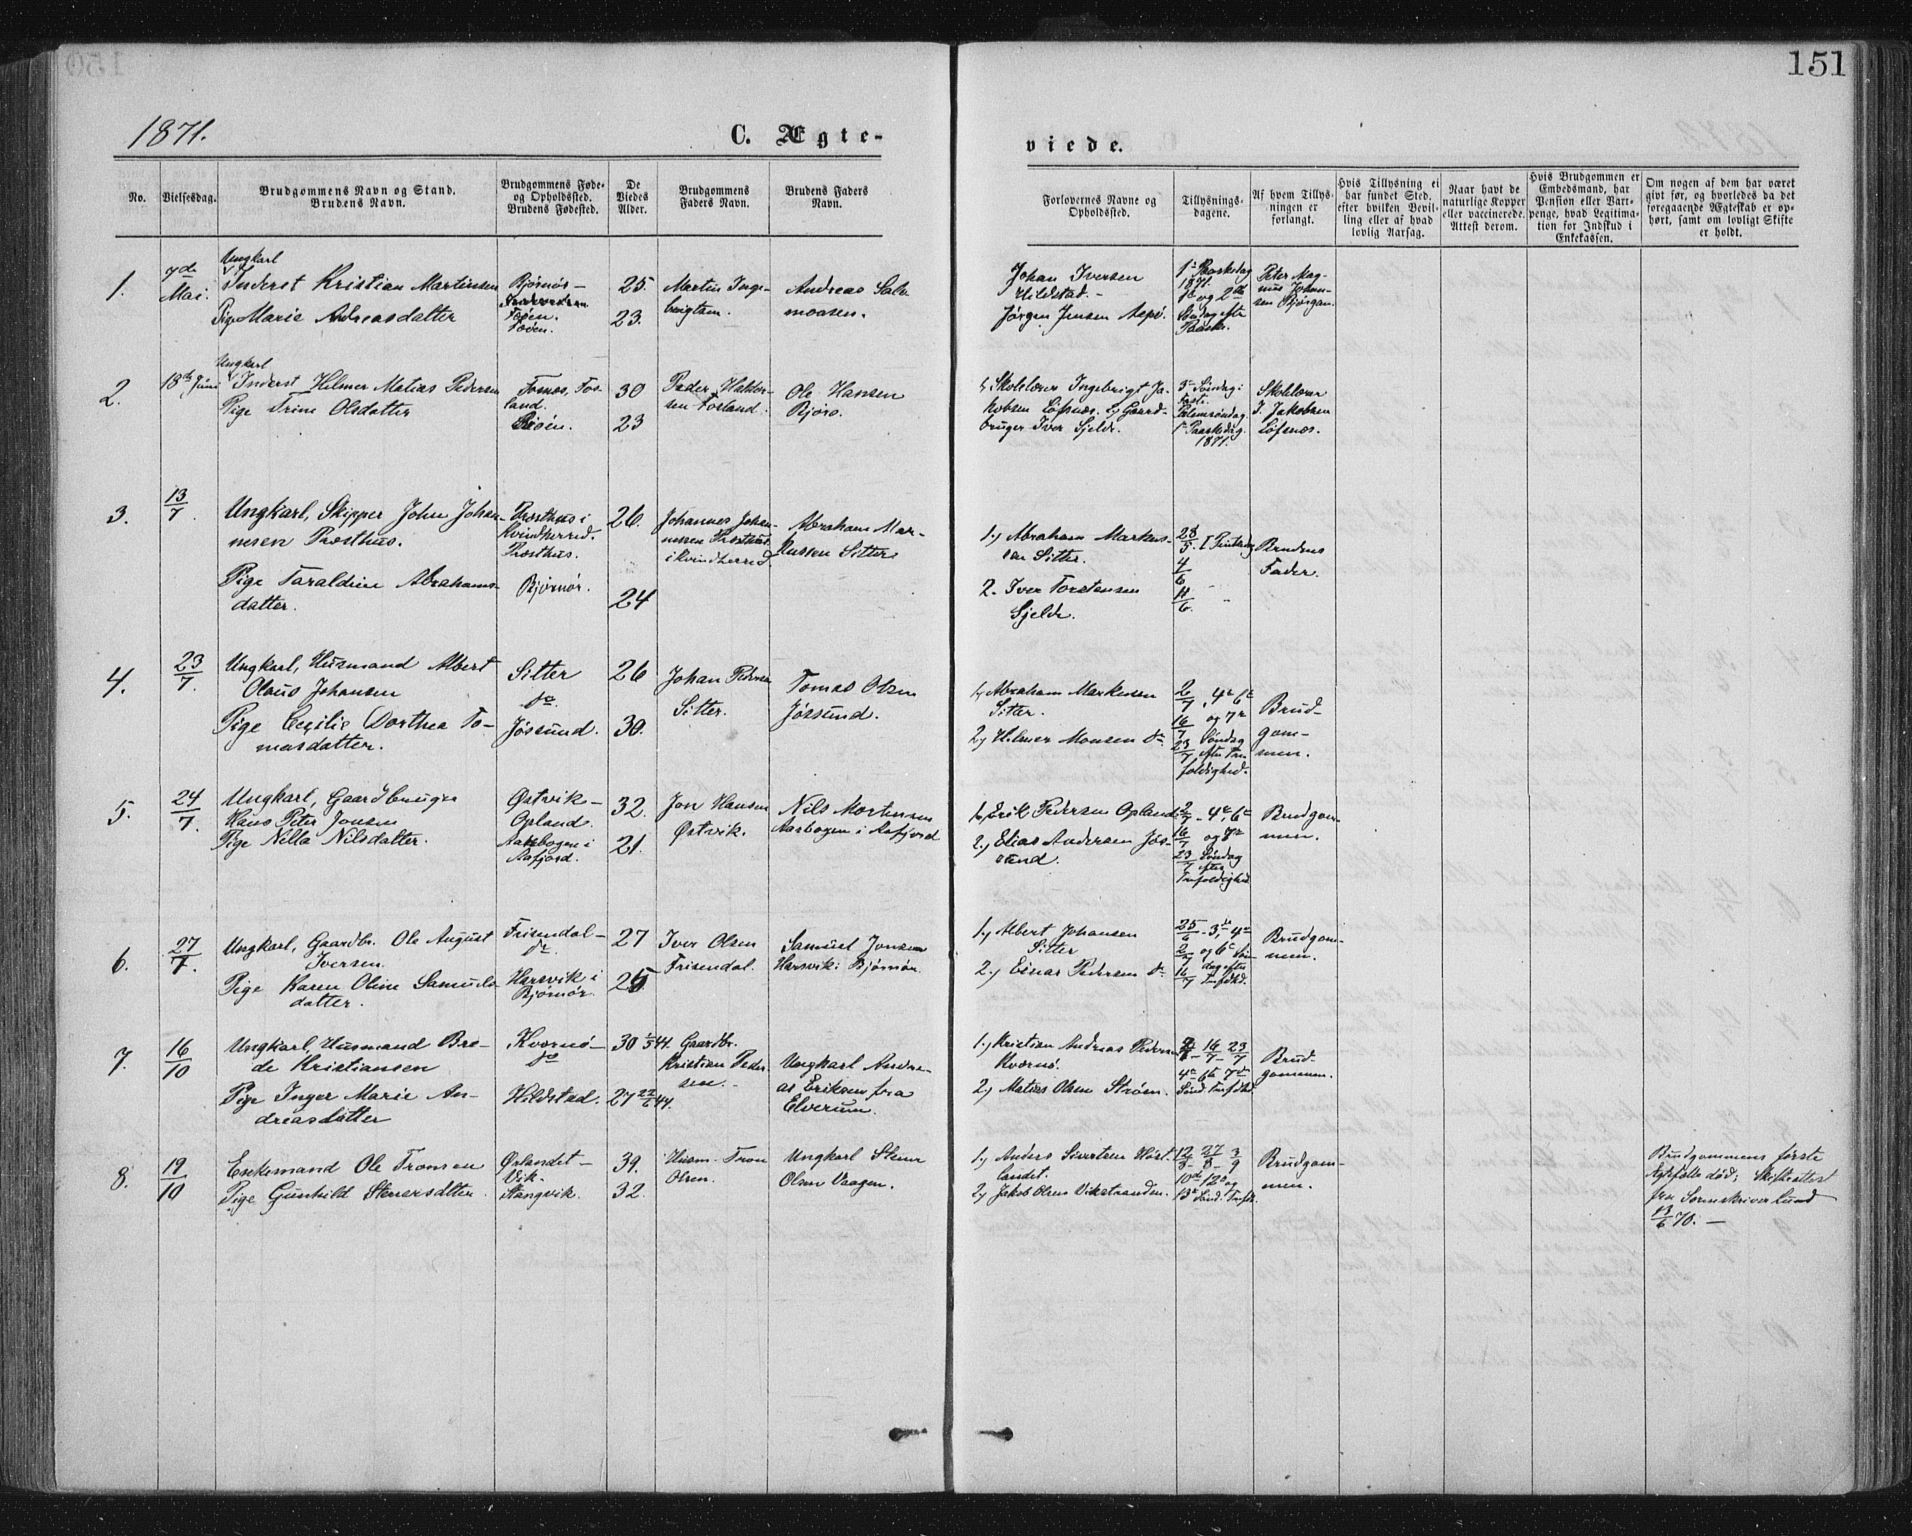 151
1871.
C. Ægte-
viede.
No.
Vielsesdag.
Brudgommens Navn og Stand.
Brudens Navn.
Brudgommens Føde-
og Opholdssted.
Brudens Fødested.
De
Viedes
Alder.
Brudgommens
Faders Navn.
Brudens Faders
Navn.
Forlovernes Navne og
Opholdssted.
Tillysnings-
dagene.
Af hvem Tillys-
ningen er
forlangt.
Hvis Tillysning ei
har fundet Sted,
efter hvilken Bevil-
ling eller af hvad
lovlig Aarsag.
Naar havt de
naturlige Kopper
eller vaccinerede.
Attest derom.
Hvis Brudgommen er
Embedsmand, har
Pension eller Vart-
penge, hvad Legitima-
tion for Indskud i
Enkekassen.
Om nogen af dem har været
givt før, og hvorledes da det
foregaaende Ægteskab er op-
hørt, samt om lovligt Skifte
er holdt.
1.
7de
Mai.
Ungkarl
Inderst Kristian Martinsen
Pige Marie Andreasdatter
Bjørnør-
25.
23.
Martin Inge-
brigtsen.
Andreas Salo-
monsen.
Johan Iversen
Hildstad. -
Jørgen Jensen Aspø.
1ste Paaskedag
1871.
1ste og 2den
Søndag efter
Paaske.
Peter Mag-
nus Johan-
sen Bjørgan.
2.
18de Juni
Ungkarl
Inderst Hilmer Matias Pedersen
Pige Trine Olsdatter
Fosnæs, Fos-
land.
30
23
Peder Haldor-
sen Fosland.
Ole Hansen
Bjørø.
1, Skolelærer Ingebrigt Ja-
kobsen Løfsnæs. 2, Gaard-
bruger Iver Sjelde.
3die Søndag i
Faste.
Palmesøndag
1ste Paaskedag
1871.
Skolelærer
I. Jakobsen
Løfsnæs.
3.
13/7.
Ungkarl, Skipper John Johan-
nesen Præsthus.
Pige Taraldine Abrahams-
datter.
Præsthus i
Kvindherred.
Præsthus.
Bjørnør.
26.
24
Johannes Johan-
nessen Præsthus
i Kvindherred
Abraham Mar-
kussen Sitter
1., Abraham Markus-
sen Sitter.
2. Iver Torstensen
Sjelde.
28/5. I Pintsedag
4/6 -
11/6. -
Brudens
Fader.
4.
23/7.
Ungkarl, Husmand Albert
Olaus Johansen
Pige Cecilie Dorthea To-
masdatter.
Sitter
do
Jøssund.
26
30.
Johan Pedersen
Sitter.
Tomas Olsen
Jøssund.
1, Abraham Markusen
Sitter.
2, Hilmer Monsen do
2/7, 4de 6te
16/7 og 7de
23/7 Søndag
efter Tre-
foldighed.
Brud-
gom-
men.
5.
24/7.
Ungkarl, Gaardbruger
Hans Peter Jonsen
Pige Nella Nilsdatter.
Østvik-
Opland.
Aarbogen i
Aafjord.
32.
21.
Jon Hansen
Østvik.
Nils Mortensen
Aarbogen i Aafjord
1, Erik Pedersen Opland
2., Elias Andersen Jøs-
sund.
2/7 - 4de, 6te
16/7 og 7de
23/7 Søndag
efter
Trefoldighed
Brudgom-
men.
6.
27/7.
Ungkarl, Gaardbr. Ole August
Iversen.
Pige Karen Oline Samuels-
datter.
Frisendal-
do.
Harsvik i
Bjørnør.
27
25.
Iver Olsen
Frisendal.
Samuel Jonsen
Harsvik i Bjørnør.
1., Albert Johansen
Sitter
2., Einar Pedersen do
25/6 - 3die, 4de
2/7 og 6te Søn-
16/7 dag efter
Trefdhd.
Brudgom-
men.
7.
16/10
Ungkarl, Husmand Bro-
de Kristiansen
Pige Inger Marie An-
dreasdatter
Kvornø-
do
Hildstad.
30 1/5 41.
27 22/6 44.
Gaardbr.
Kristian Peder-
sen. -
Ungkarl Andre-
as Eriksen fra
Elverum.
1., Kristian Andreas Pedersen
Kvornø.
2., Matias Olsen Strøm.
2/7 - 16/7 - 23/7
4de 6te 7de
Sønd. Trefdhd.
Brud-
gommen.
8.
19/10
Enkemand Ole Tronsen
Pige Gunhild Stenersdatter.
Ørlandet-
Vik.
Stangvik.
39.
32.
Husm. Tron
Olsen.
Ungkarl Stener
Olsen Vaagen.
1., Anders Sivertsen Høst-
landet.
2, Jakob Olsen Vikstranden.
12/8 - 27/8 - 3/9
10de 12te og
13de Sønd. Trefh.
Brudgom-
men.
Brudgommens første
Ægtefælle død; Skifteattest
fra Sorenskriver Lund
13/6 70. -